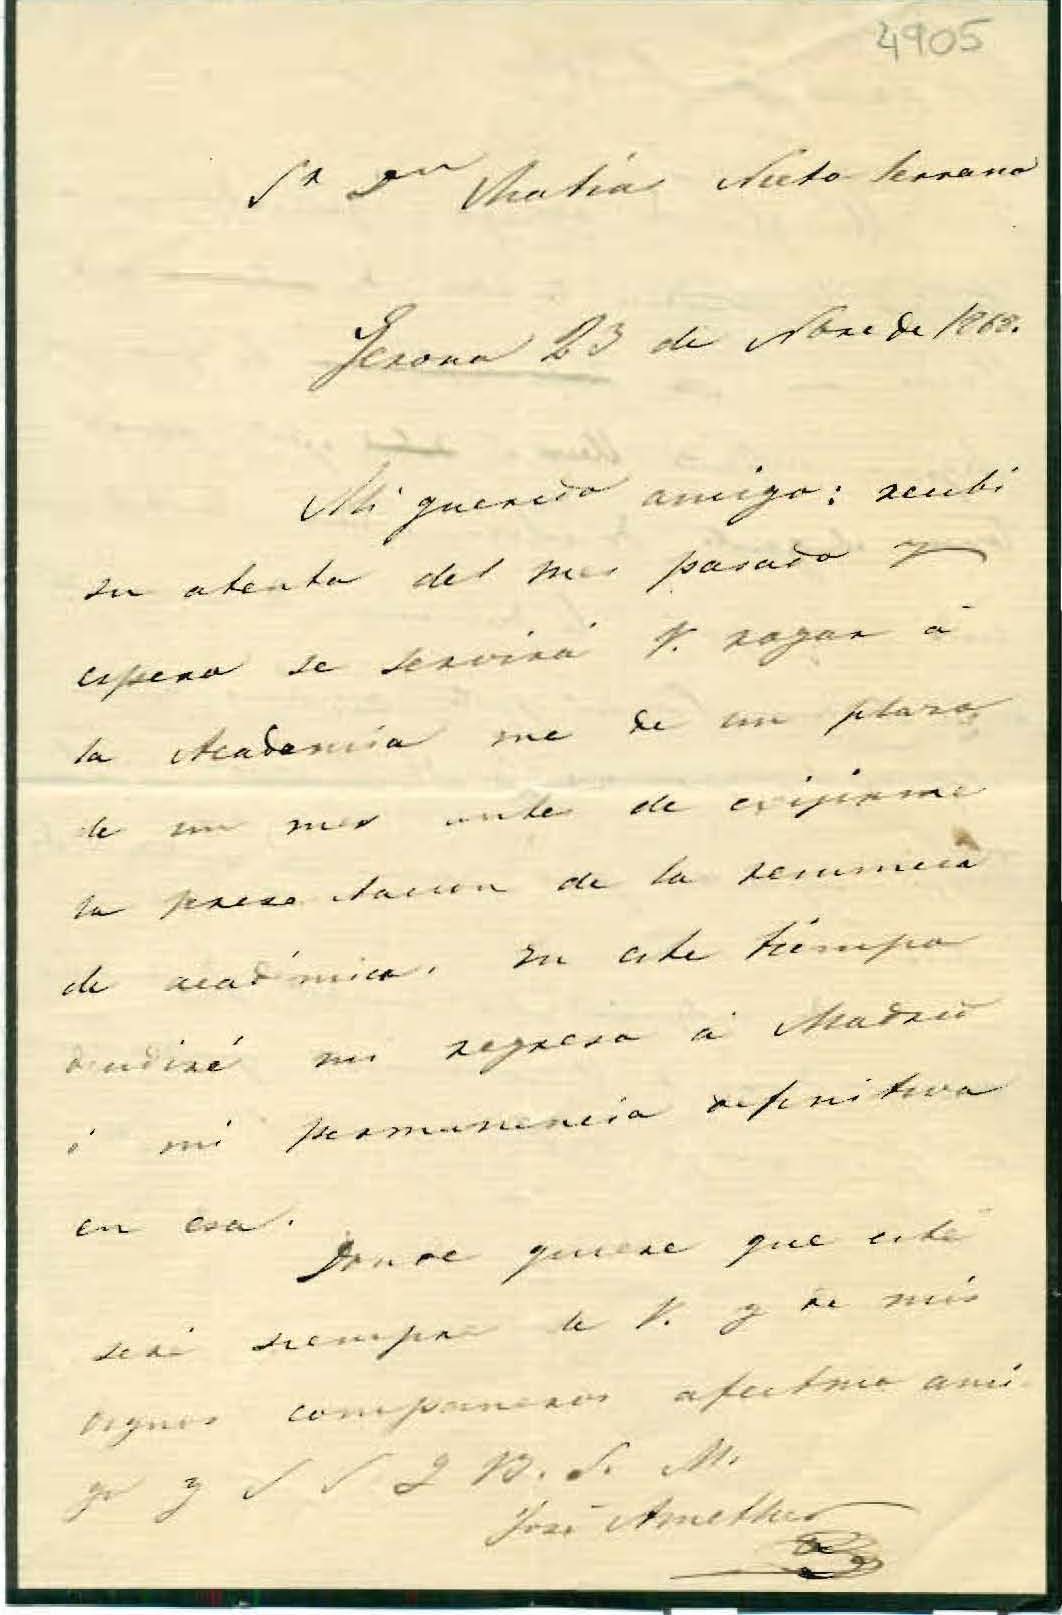 4905
Sr Dn Matias Nieto Serrano
Gerona 23 de Nbre de 1868.
Mi querido amigo: recibi
su atenta del mes pasado y
espero se servirá V. rogar á
la Academia me de un plazo
de un mes antes de exijirme
la presentacion de la renuncia
de académico. En este tiempo
mi regreso á Madrid
ó mi permanencia definitiva
en esa.
Donde quiera que esté
seré siempre de V. y de mis
dignos compañeros afectmo ami-
go y S S Q B. S. M.
José Ametller